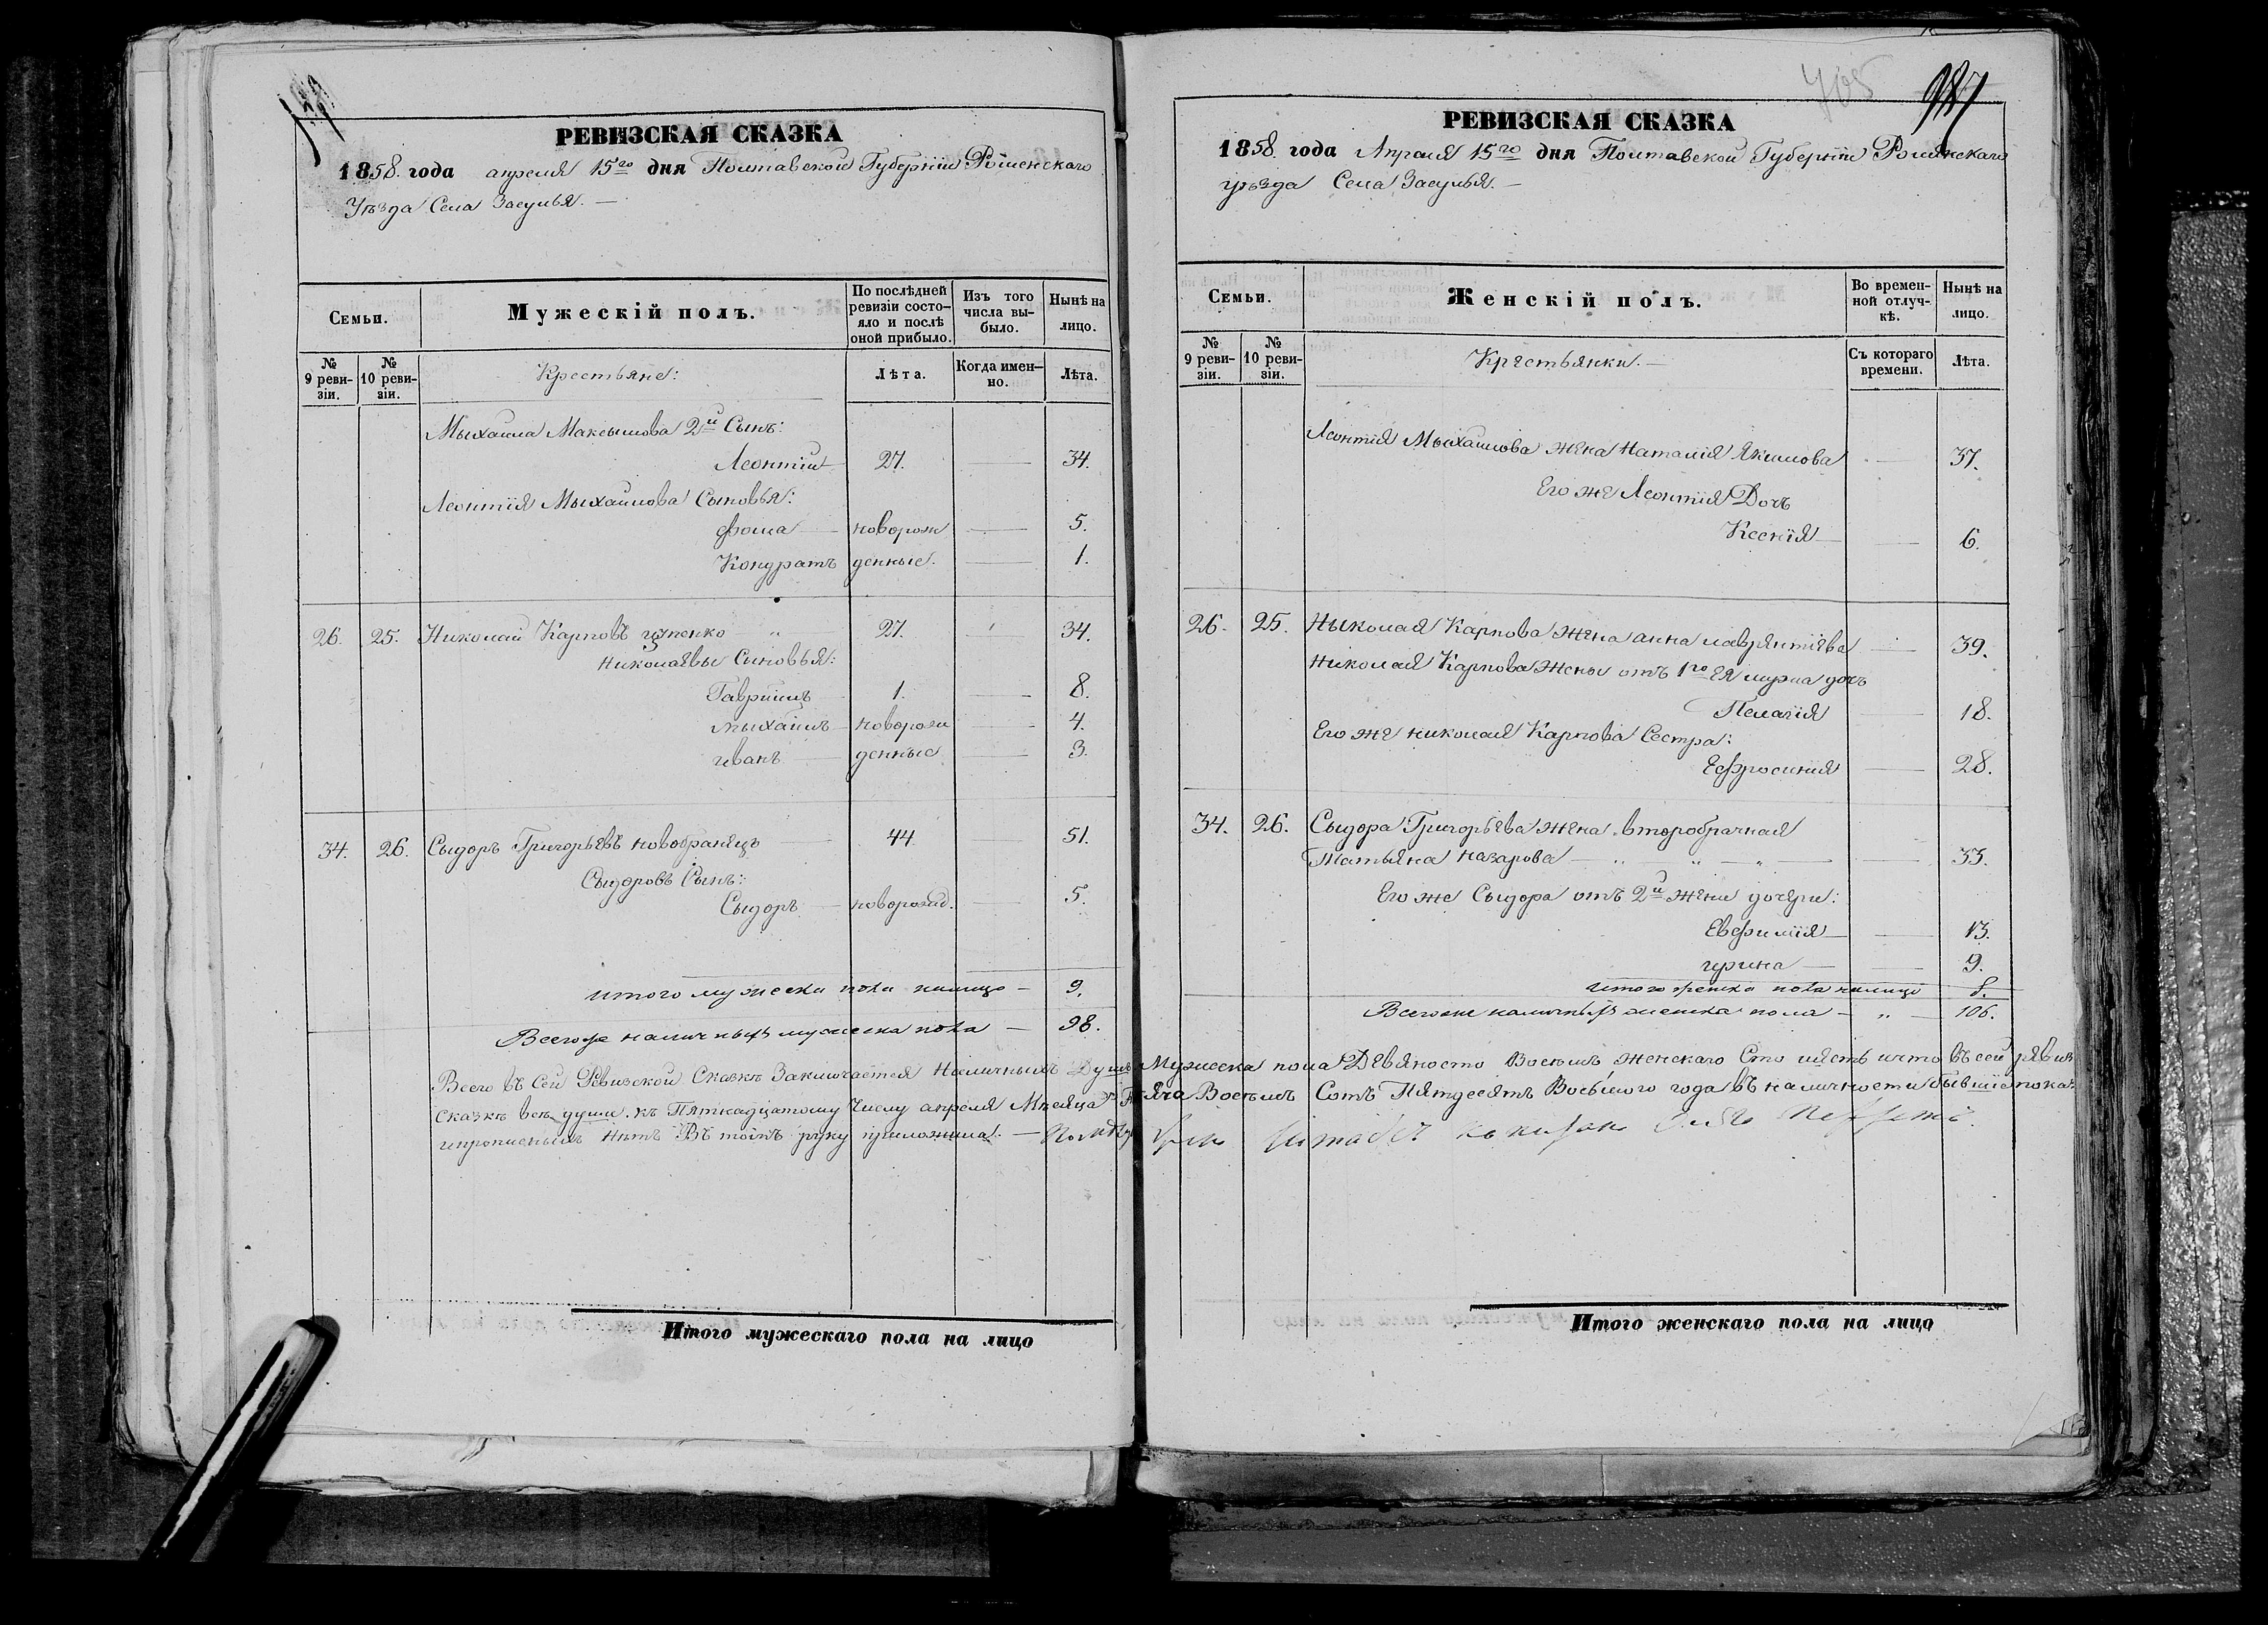 РЕВИЗСКАЯ СКАЗКА
1858. года апреля 15го дня Полтавской Губернїи Роменскаго
Уѣзда Села Засулья. —
Семьи.
Мужескій полъ.
По послѣдней ревизіи состояло и послѣ оной прибыло.
Изъ того числа выбыло.
Нынѣ на лицо.
№ 9 ревизіи.
№ 10 ревизіи.
Крестьяне:
Лѣта.
Когда именно.
Лѣта.
Мыхайла Максымова 2й Сынъ:
Леонтій — 27. — 34.
Леонтія Мыхайлова Сыновья:
фома — новорож — 5.
Кондратъ денные. — 1.
26. 25. Николай Карповъ 27. 34.
николаявы Сыновья:
Гаврїилъ 1. — 8.
мыхайлъ — новорож — 4.
иванъ — денные — 3.
34. 26. Сыдоръ Григорьявъ новобраняцъ — 44 51.
Сыдоровъ Сынъ:
Сыдоръ — новорожд. — 5.
итого мужеска пола налицо — 9.
Всегоже наличныхъ мужеска пола — 98.
РЕВИЗСКАЯ СКАЗКА
1858. года Апреля 15го дня Полтавской Губернїи Роменскаго
уѣзда Села Засулья. —
Семьи.
Женскій полъ.
Во временной отлучкѣ.
Нынѣ на лицо.
№ 9 ревизіи.
№ 10 ревизіи.
Крястьянки. —
Съ котораго времени.
Лѣта.
Леонтія Мыхайлова жяна Наталїя Якимова — 37.
Его жя Леонтїя Дочъ
Ксенїя — — 6.
26. 25. Николая Карпова жяна анна лаврянтїява — 39.
николая Карпова жены отъ 1го ея мужа дочъ
Пелагїя — 18.
Его жя николая Карпова Сестра:
Ефросинїя — 28.
34. 26. Сыдора Григорьява жяна второбрачная
Татьяна назарова — — 33.
Его же Сыдора отъ 2й жяны дочяри:
Евфимїя — — 13.
ирина — — 9.
итого женска пола налицо 8.
Всегоже наличныхъ женска пола — „ — 106.
Всего въ Сей Рѣвизской Сказкѣ Заключается Наличныхъ Душъ Мужеска пола Дѣвяносто Восѣмъ женскаго Сто шясть ичто въ сей рявиз
Сказкѣ всѣ души. къ Пятнадцатому Числу апреля Мѣсяца яча Восѣмъ Сотъ Пятдесятъ Восьмого года въ наличности бывшїе показ
ипрописныхъ Нѣтъ Въ томъ руку приложила: —
Итого мужескаго пола на лицо
Итого женскаго пола на лицо
705